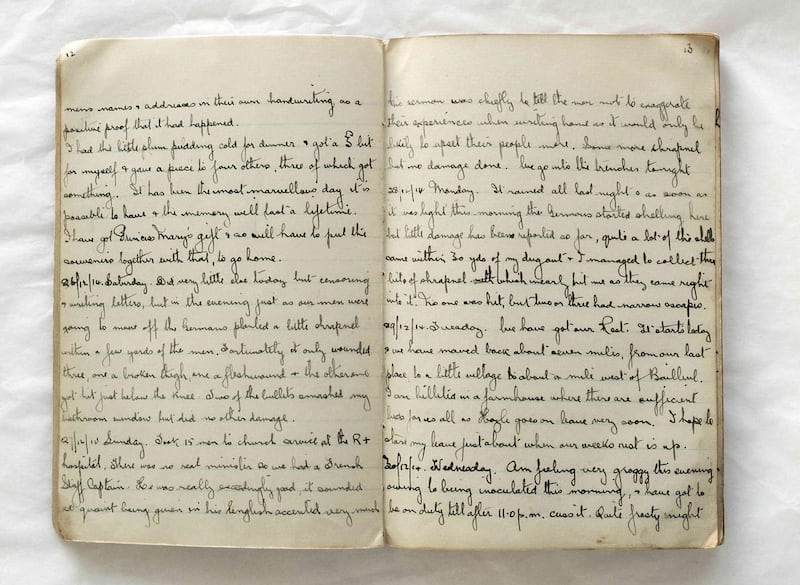 12
mens names & addresses in their own handwriting as a
positive proof that it had happened.
I had the little plum pudding cold for dinner & got a bit
for myself & gave a piece to four others, three of which got
something. It has been the most marvellous day it is
possible to have & the memory will last a lifetime.
I have got Princess Mary's gift & so will have to put the
souvenirs together with that, to go home.
26/12/14. Saturday. Did very little else today but censoring
& writing letters, but in the evening just as our men were
going to move off the Germans planted a little shrapnel
within a few yards of the men. Fortunately it only wounded
three, one a broken thigh, one a fleshwound & the other one
got hit just below the knee. Two of the bullets smashed my
bathroom window but did no other damage.
27/12/14 Sunday. Took 15 men to church service at the
hospital. There was no real minister so we had a French
Staff Captain. He was really exceedingly good, it sounded
so quaint being given in his English accented very much
13
his sermon was chiefly to tell the men not to exaggerate
their experiences when writing home as it would only be
likely to upset their people more. Some more shrapnel
but no damage done. We go into the trenches tonight
28/12/14 Monday. It rained all last night & as soon as
it was light this morning the Germans started shelling here
but little damage has been reported so far, quite a lot of the shells
came within 30 yds of my dug out & I managed to collect three
bits of shrapnel which nearly hit me as they came right
into it. No one was hit, but two or three had narrow escapes.
29/12/14 Tuesday. We have got our Rest. It starts today
& we have moved back about seven miles, from our last
place to a little village about a mile west of Bailleul.
I am billeted in a farmhouse where there are sufficient
beds for us all as Hoyle goes on leave very soon. I hope to
start my leave just about when our weeks rest is up.
30/12/14. Wednesday. Am feeling very groggy this evening
owing to being inoculated this morning, & have got to
be on duty till after 11.0 p.m. cuss it. Quite frosty night